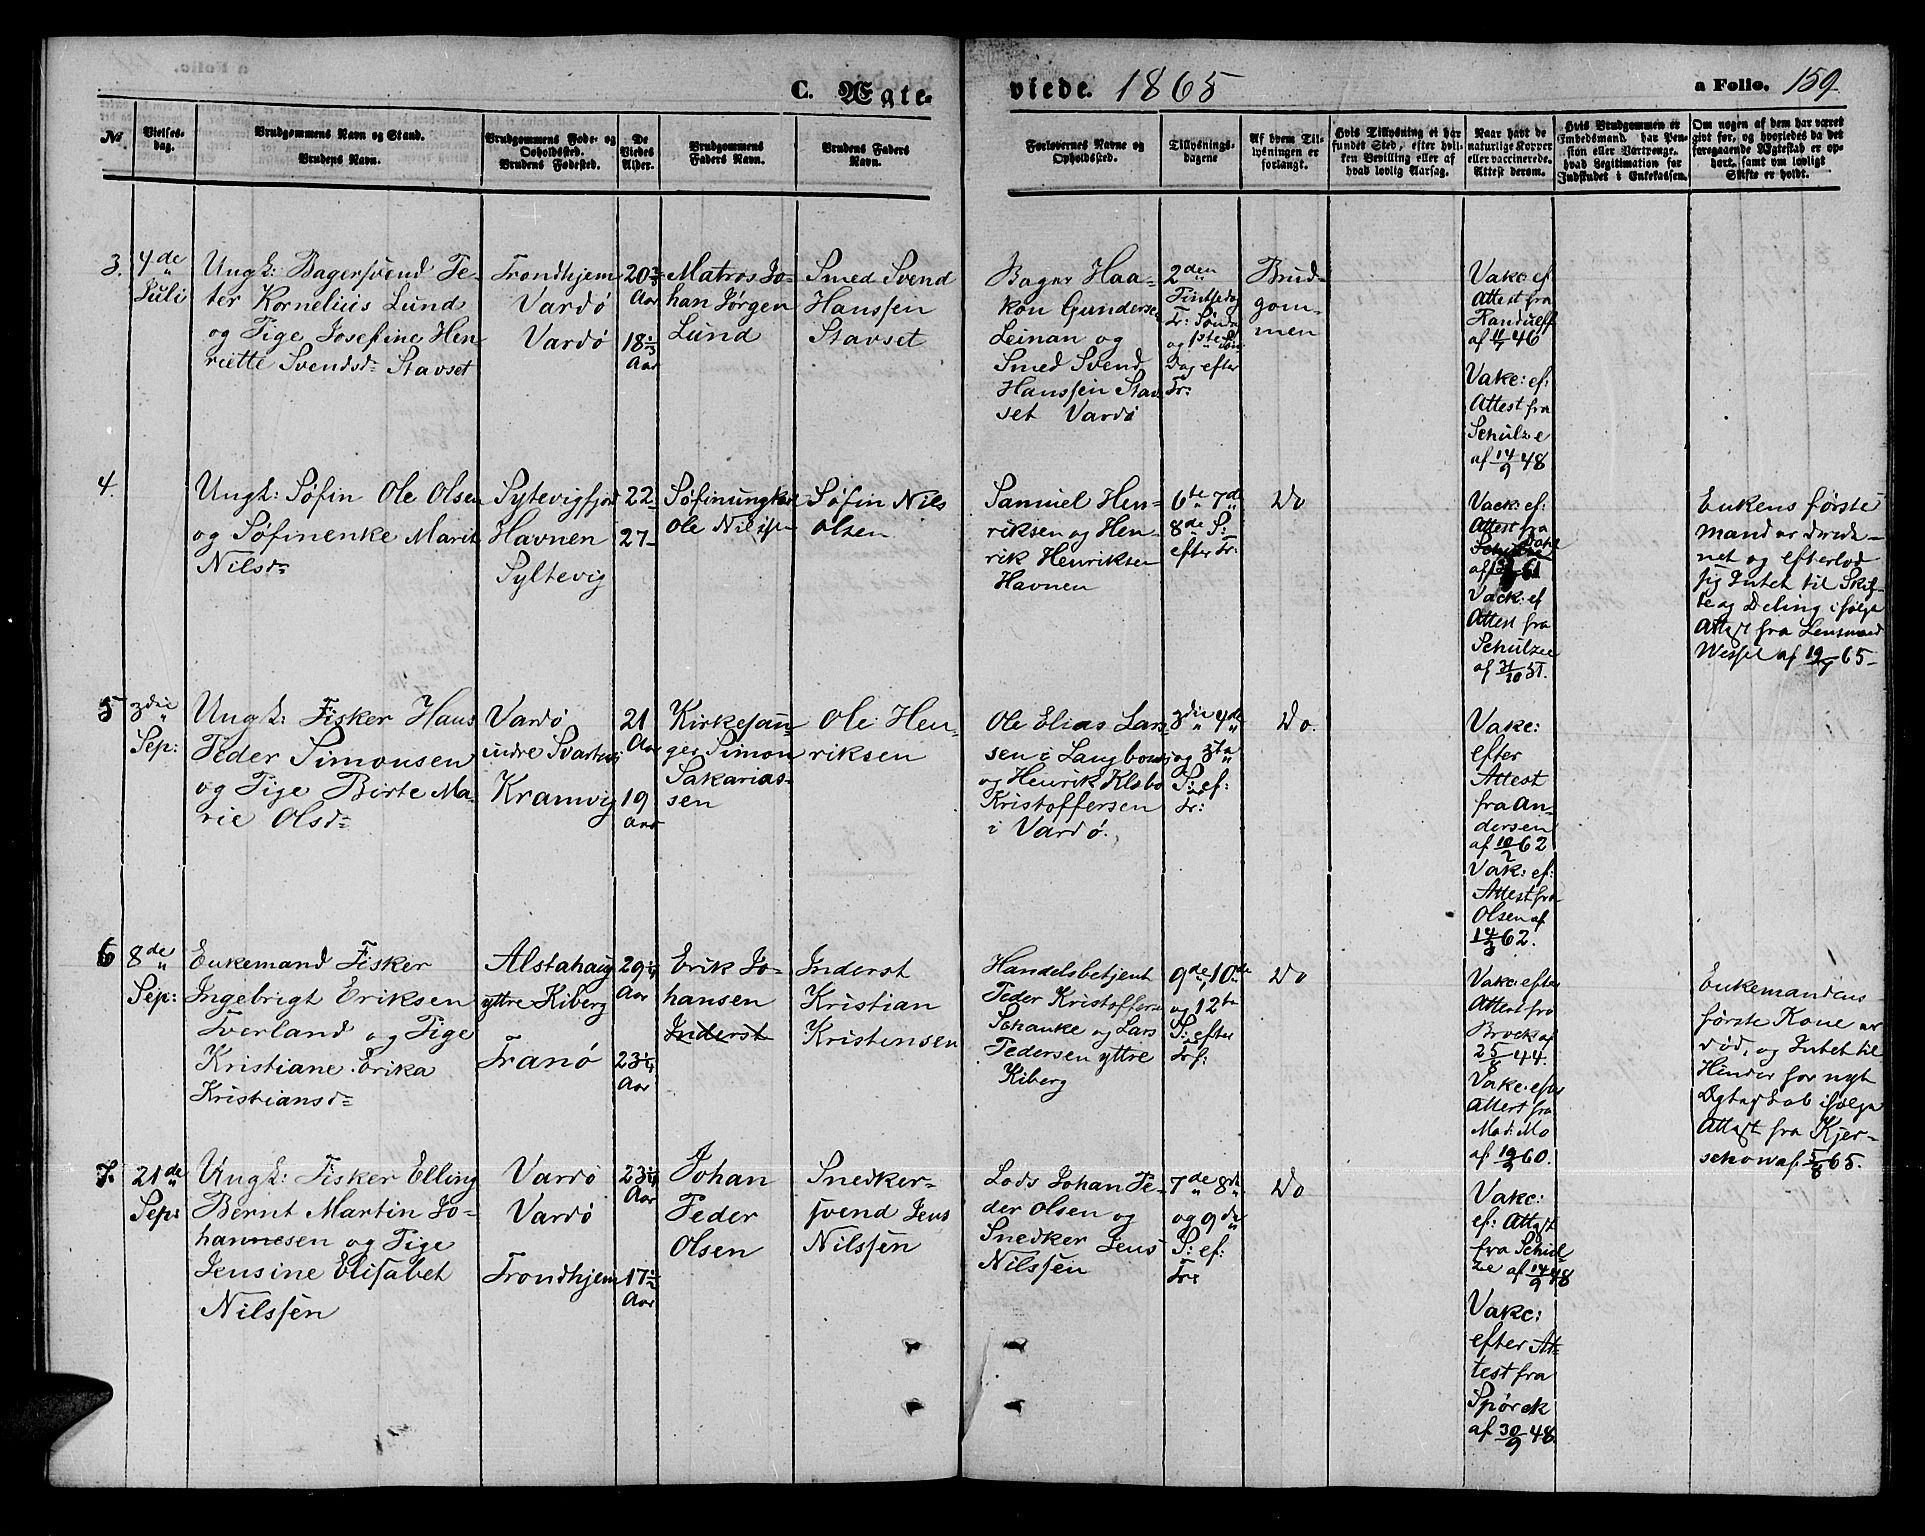 C. Ægte-
viede. 1865
a Folio. 159
No
Vielses-
dag.
Brudgommens Navn og Stand.
Brudens Navn.
Brudgommens Føde- og
Opholdssted.
Brudens Fødested.
De
Viedes
Alder.
Brudgommens
Faders Navn.
Brudens Faders
Navn.
Forlovernes Navne og
Opholdssted.
Tillysnings-
dagene
Af hvem Til-
lysningen er
forlangt.
Hvis Tillysning ei har
fundet Sted, efter hvil-
ken Bevilling eller af
hvad lovlig Aarsag.
Naar havt de
naturlige Kopper
eller vaccinerede.
Attest derom.
Hvis Brudgommen er
Embedsmand, har Pen-
sion eller Vartpenge,
hvad Legitimation for
Indskudet i Enkekassen.
Om nogen af dem har været
givt før, og hvorledes da det
foregaaende Ægteskab er op-
hørt, samt om lovligt
Skifte er holdt.
3.
4de
Juli
Ungk: Bagersvend Pe-
ter Kornelius Lund
og Pige Josefine Hen
riette Svendsd= Stavset
Trondhjem
Vardø
Vardø
20 2/3
Aar
18 1/3
Aar
Matros Jo-
han Jørgen
Lund
Smed Svend
Hanssen
Stavset
Bager Haa-
kon Gunderse
Leinan og
Smed Svend
Hanssen Stav
set Vardø
2den
Pintsedag
Tr: Sønd
og 1ste Søn
Dag efter
Tr:
Brud-
gom-
men
Vakc: ef
Attest fra
af 46
Vakc: ef:
Attest fra
Schulze
af 14/9 48
4.
Ungk: Søfin Ole Olsen
og Søfinenke Marit
Nilsd=
Syltevigfjord
Havnen
Syltevig
22-
27-
Søfinungkarl
Ole Nilssen
Søfin Nils
Olsen
Samuel Hen-
riksen og Hen-
rik Henriksen
Havnen
6te 7de
8de S:
efter Tr:
Do
Vack: ef:
Attest fra
Dahl
af 61
Vack: ef
Attest fra
Schulze
af 31/10 51.
Enkens første
Mand er drukk-
net og efterlod
sig Intet til Skif-
te og Deling ifølge
Attest fra Lensmand
Wessel af 19/7 65-
5
3die
Sep:
Ungk: Fisker Hans
Peder Simonsen
og Pige Birte Ma-
rie Olsd=
Vardø
indre Svartnæs
Kramvig
21
Aar
19
Aar
Kirkesan-
ger Simon
Sakarias-
sen
Ole Hen-
riksen
Ole Elias Lars
sen i Langbones
og Henrik Klebo
Kristoffersen
i Vardø.
3die 4de
og 5te
S: ef:
Tr:
Do.
Vakc:
efter
Attest
fra An-
dersen
af 10/2 62
Vakc: ef:
Attest fra
Olsen af
14/3 62.
6
8de
Sep:
Enkemand Fisker
Ingebrigt Eriksen
Tverland og Pige
Kristiane Erika
Kristiansd=
Alstahaug
yttre Kiberg
Tranø
29 1/4
Aar
23 1/4
Aar
Erik Jo-
hansen
Inderst
Inderst
Kristian
Kristensen
Handelsbetjent
Peder Kristofferse
Schanke og Lars
Pedersen yttre
Kiberg
9de, 10de
og 12te
S: efter
Trf:
Do
Vakc: efter
Attest fra
Brock af
25/8 44.
Vakc: efter
Attest fra
Mad: Mo
af 19/9 60.
Enkemandens
første Kone er
død, og Intet til
Hinder for nyt
Ægteskab ifølge
Attest fra Kjer-
schow af 5/8 65.
7.
21de
Sep:
Ungk: Fisker Elling
Bernt Martin Jo-
hannesen og Pige
Jensine Elisabet
Nilssen
Vardø
Vardø
Trondhjem
23 1/4
Aar
17 1/2
Aar
Johan
Peder
Olsen
Snedker-
svend Jens
Nilssen
Lods Johan Pe-
der Olsen og
Snedker Jens
Nilssen
7de 8de
og 9de
S: ef:
Tr:
Do
Vakc:
ef: Attest
fra Schul
ze af 14/9 48
Vakc:
efter At-
test fra
Spørck
af 30/9 48.